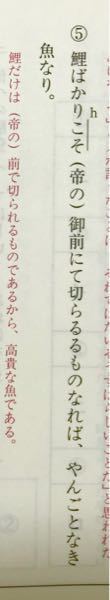 ⑤ 鯉ばかりこそ(帝の)御前にて切らるるものなれば、やんごとなき
h
魚なり。
鯉だけは(帝の)前で切られるものであるから、高貴な魚である。